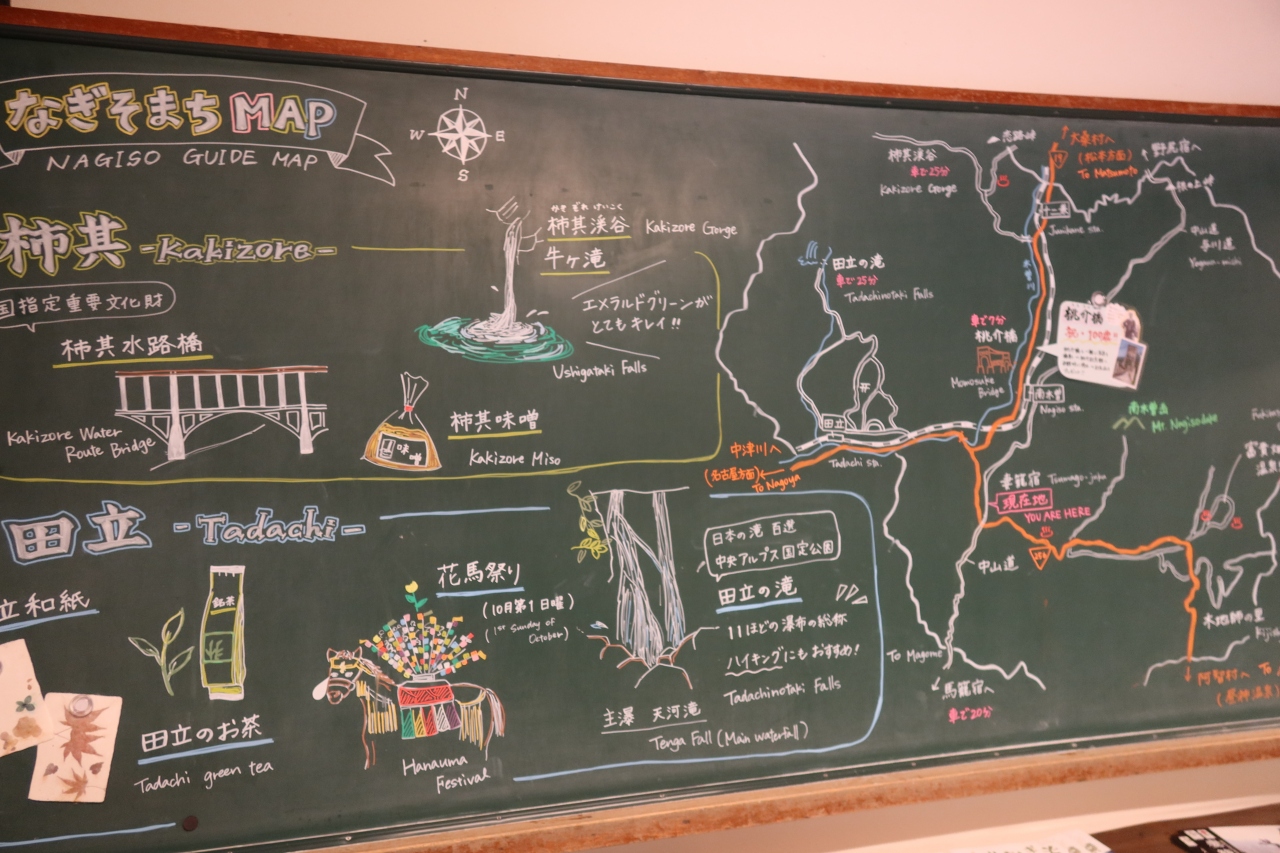 なぎそまち MAP
NAGISO GUIDE MAP
N
W E
S
柿其 -Kakizore-
国指定重要文化財
柿其水路橋
Kakizore Water
Route Bridge
柿其味噌
Kakizore Miso
かきぞれ けいこく
柿其渓谷 Kakizore Gorge
牛ヶ滝
エメラルドグリーンが
とてもキレイ!!
Ushigataki Falls
田立 -Tadachi-
立和紙
銘茶
田立のお茶
Tadachi green tea
花馬祭り
(10月第1日曜)
(1st Sunday of
October)
Hanauma
Festival
日本の滝百選
中央アルプス国定公園
田立の滝
11ほどの瀑布の総称
ハイキングにもおすすめ!
Tadachinotaki Falls
主瀑 天河滝
Tenga Fall (Main waterfall)
柿其渓谷
車で25分
Kakizore Gorge
恋路峠
19
大桑村へ
(松本方面)
To Matsumoto
野尻宿へ
根の上峠
十二兼
Junikane sta.
中山道
与川道
Yogawa-michi
木曽川
田立の滝
車で25分
Tadachinotaki Falls
車で7分
桃介橋
Momosuke
Bridge
桃介橋
南木曽
Nagiso sta.
南木曽岳
Mt. Nagisodake
田立
Tadachi sta.
中津川へ
(名古屋方面)
To Nagoya
妻籠宿 Tsumago-juku
現在地
YOU ARE HERE
中山道
256
To Magome
馬籠宿へ
車で20分
木地師の里
阿智村へ To
(昼神温泉)